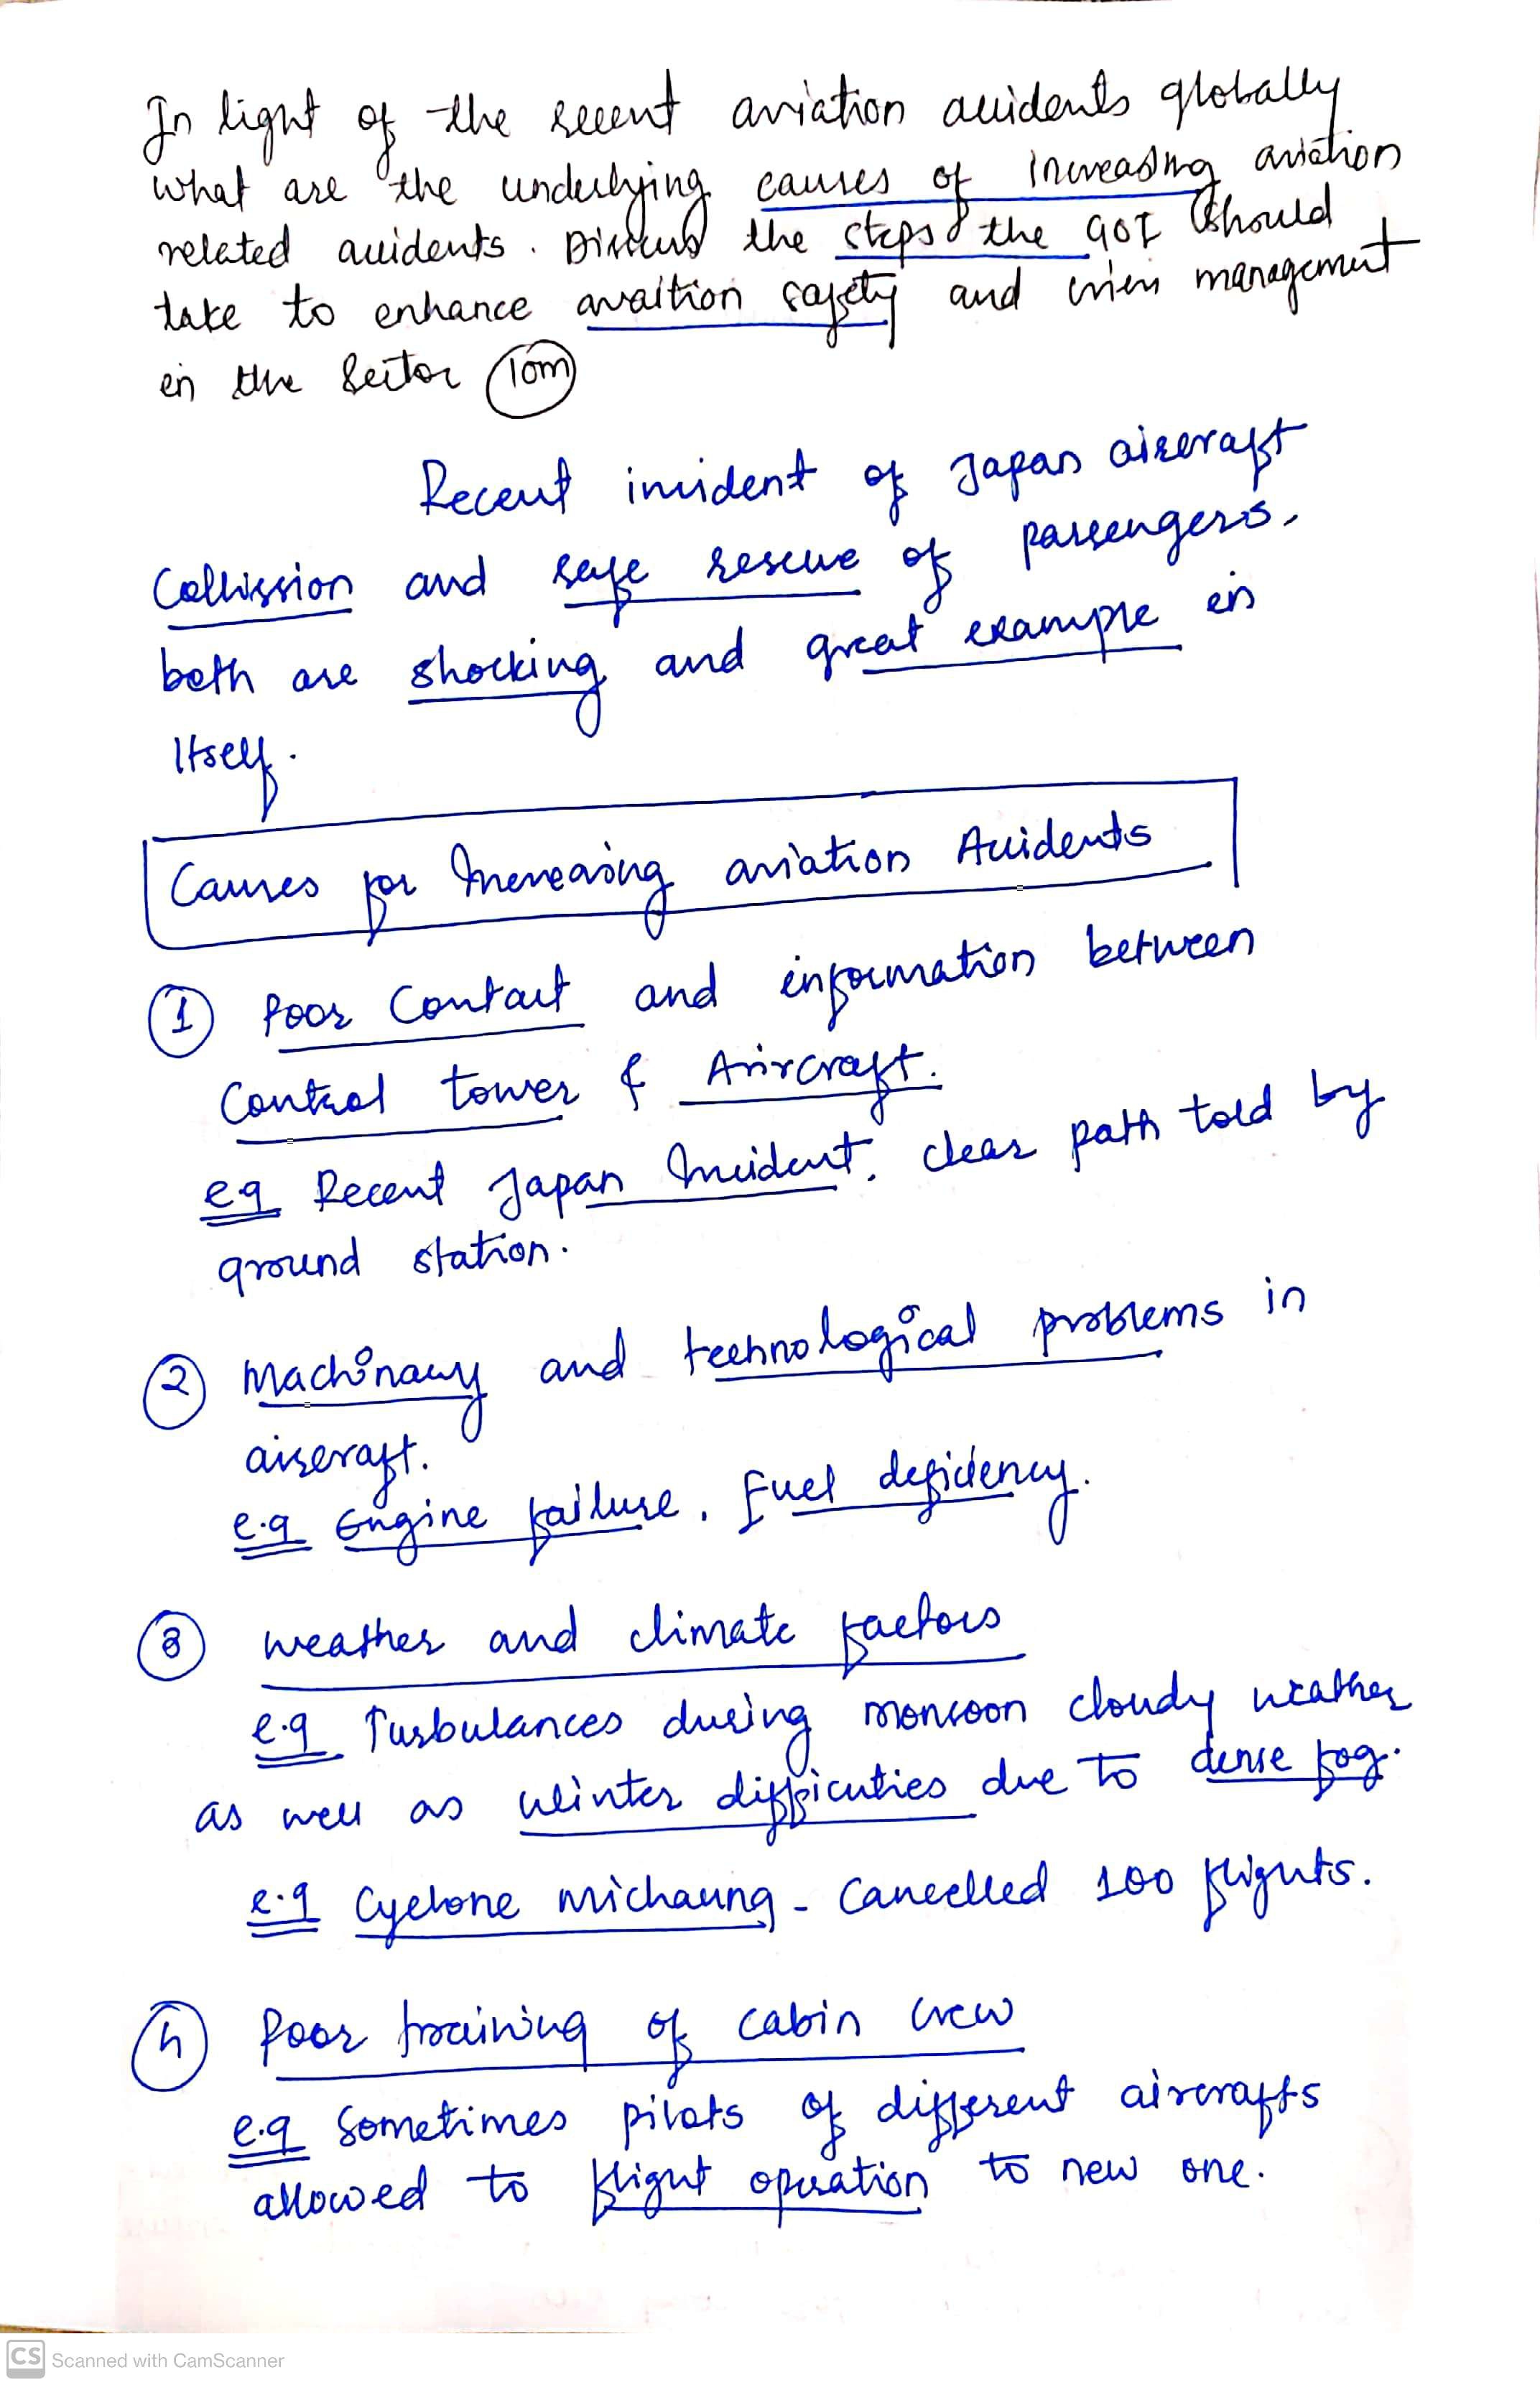 In light of the recent aviation accidents globally
what are the underlying causes of increasing aviation
related accidents. Discuss the steps the GOI should
take to enhance avaition safety and crisis management
in the sector 10m
Recent incident of Japan aircraft
Collission and safe rescue of passengers,
both are shocking and great example in
itself.
Causes for Increasing aviation Accidents
1 Poor Contact and information between
Control tower & Anircraft.
e.g Recent Japan Incident, clear path told by
ground station.
2 Machinary and technological problems in
aircraft.
e.g Engine failure, Fuel deficiency.
3 weather and climate factors
e.g Turbulances during monsoon cloudy weather
as well as winter difficuties due to dense fog.
e.g Cyclone michaung - Cancelled 100 flights.
4 Poor training of cabin crew
e.g Sometimes pilots of different aircrafts
allowed to flight operation to new one.
CS Scanned with CamScanner